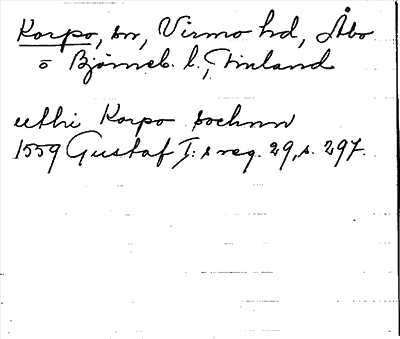 Korpo, sn, Virmo hd, Åbo
o Björneb. l., Finland
uthi Korpo sochnn
1559 Gustaf I:s reg. 29, s. 297.